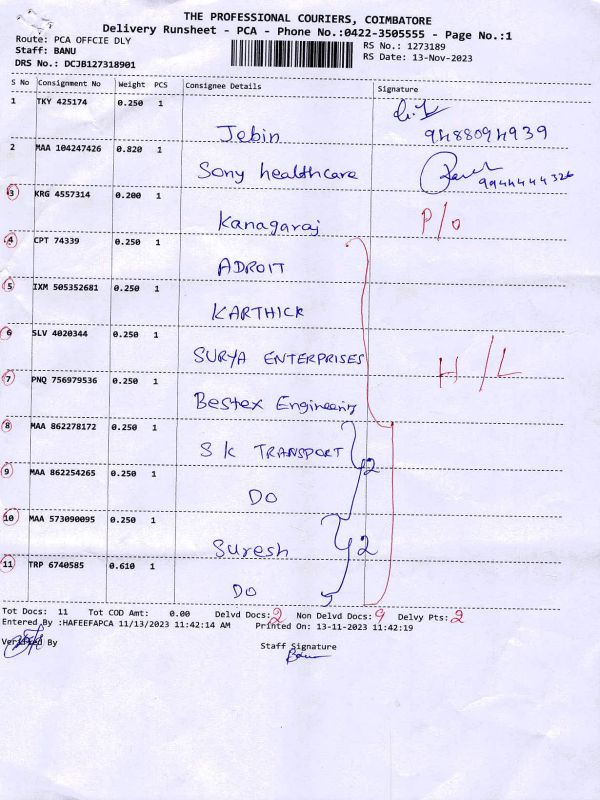 THE PROFESSIONAL COURIERS, COIMBATORE
Delivery Runsheet - PCA - Phone No.:0422-3505555 - Page No.:1
Route: PCA OFFCIE DLY
RS No.: 1273189
Staff: BANU
RS Date: 13-Nov-2023
DRS No.: DCJB127318901
S No Consignment No Weight PCS Consignee Details Signature
1 TKY 425174 0.250 1
Jebin 9488094939
2 MAA 104247426 0.820 1
Sony healthcare 9944444326
3 KRG 4557314 0.200 1
Kanagaraj P/o
4 CPT 74339 0.250 1
ADROIT
5 IXM 505352681 0.250 1
KARTHICK
6 SLV 4020344 0.250 1
SURYA ENTERPRISES H/L
7 PNQ 756979536 0.250 1
Bestex Engineering
8 MAA 862278172 0.250 1
S K TRANSPORT
9 MAA 862254265 0.250 1
DO
10 MAA 573090095 0.250 1
Suresh
11 TRP 6740585 0.610 1
DO
Tot Docs: 11 Tot COD Amt: 0.00 Delvd Docs: 2 Non Delvd Docs: 9 Delvy Pts: 2
Entered By :HAFEEFAPCA 11/13/2023 11:42:14 AM Printed On: 13-11-2023 11:42:19
Verified By
Staff Signature